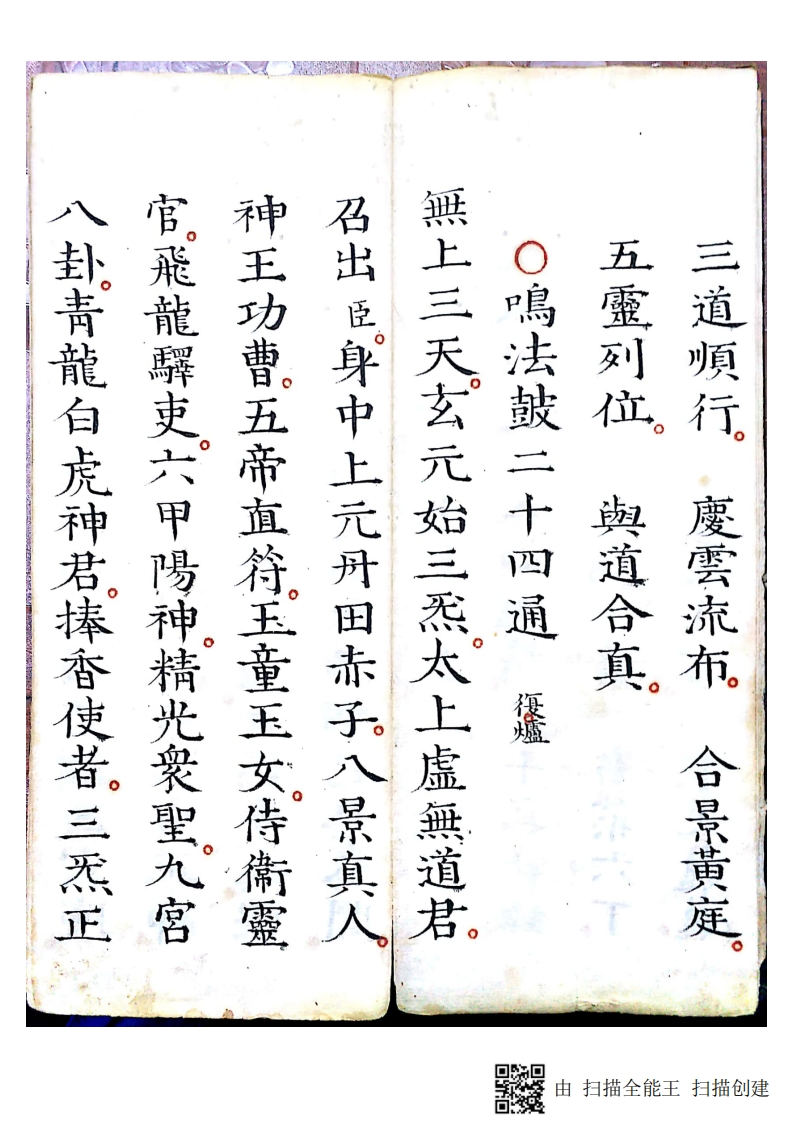 三道順行。慶雲流布。合景黃庭。
五靈列位。與道合真。
○鳴法鼓二十四通 復爐
無上三天。玄元始三炁。太上虛無道君。
召出臣。身中上元丹田赤子。八景真人。
神王功曹。五帝直符。玉童玉女。侍衛靈
官。飛龍驛吏。六甲陽神。精光衆聖。九宮
八卦。青龍白虎神君。捧香使者。三炁正
由 扫描全能王 扫描创建